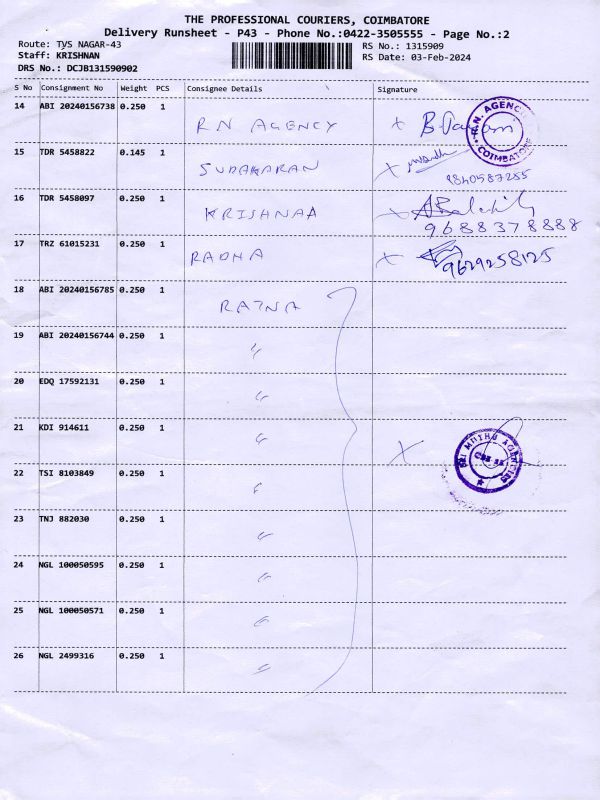 THE PROFESSIONAL COURIERS, COIMBATORE
Delivery Runsheet - P43 - Phone No.:0422-3505555 - Page No.:2
Route: TVS NAGAR-43 RS No.: 1315909
Staff: KRISHNAN RS Date: 03-Feb-2024
DRS No.: DCJB131590902
S No Consignment No Weight PCS Consignee Details Signature
14 ABI 20240156738 0.250 1 RN AGENCY x R.N. AGENCY COIMBATORE
15 TDR 5458822 0.145 1 SUDAKARAN x
9840587285
16 TDR 5458097 0.250 1 KRISHNAA x
9688378888
17 TRZ 61015231 0.250 1 RADHA x 9629258125
18 ABI 20240156785 0.250 1 RATNA
19 ABI 20240156744 0.250 1 〃
20 EDQ 17592131 0.250 1 〃
21 KDI 914611 0.250 1 〃 x SRI MUTHU AGENCIES
22 TSI 8103849 0.250 1 〃
23 TNJ 882030 0.250 1 〃
24 NGL 100050595 0.250 1 〃
25 NGL 100050571 0.250 1 〃
26 NGL 2499316 0.250 1 〃